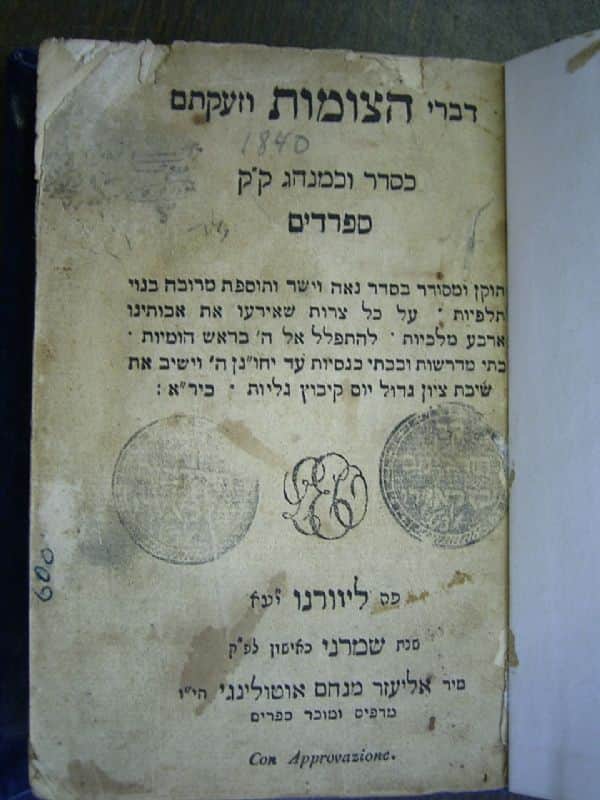 דברי הצומות וזעקתם
1840
כסדר וכמנהג ק"ק
ספרדים
תוקן ומסודר בסדר נאה וישר ותוספת מרובה בנוי
תלפיות · על כל צרות שאירעו את אבותינו
ארבע מלכיות · להתפלל אל ה' בראש הומיות ·
בתי מדרשות ובבתי כנסיות עד יחו"נן ה' וישיב את
שיבת ציון גדול יום קיבוץ גליות · ביר"א :
פס ליוורנו יע"א
שנת שמרני כאישון לפ"ק
מיר אליעזר מנחם אוטולינגי הי"ו
מדפיס ומוכר ספרים
Con Approvazione.
600